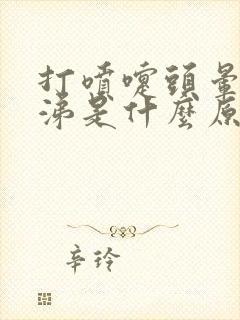 打噴嚏頭暈
涕是什麼原
辛玲